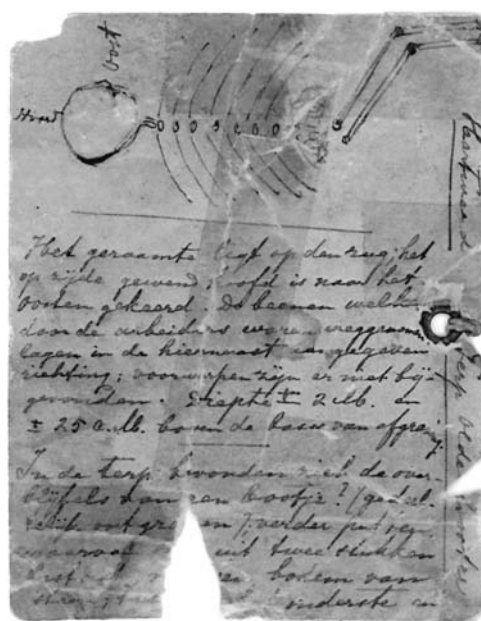 Oost
Hoofd
Het geraamte ligt op den rug; het
op zijde gewend, hoofd is naar het
oosten gekeerd. De beenen welke
door de arbeiders waren weggraven
lagen in de hiernaast aangegeven
richting; voorwerpen zijn er niet bij
gevonden. Diepte ± 2 M. en
± 25 c.M. boven de basis van afgraving
In de terp bevonden zich de over-
blijfsels van een bootje? (gedeel-
telijk ontgraven); verder putten
waarvan uit twee stukken
bodem van
onderste
Terp Olde